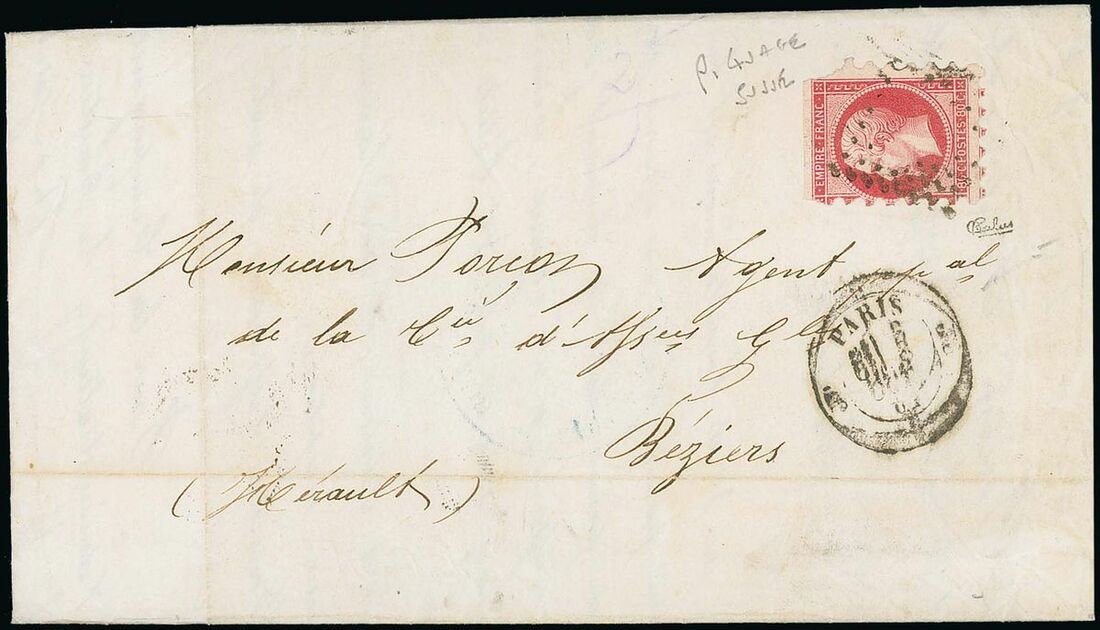 PIQUAGE
SUSSE
EMPIRE FRANC.
POSTES 80 C.
Calves
Monsieur Agent pal
de la Cie d'Assces Gles
PARIS
Béziers
(Hérault)